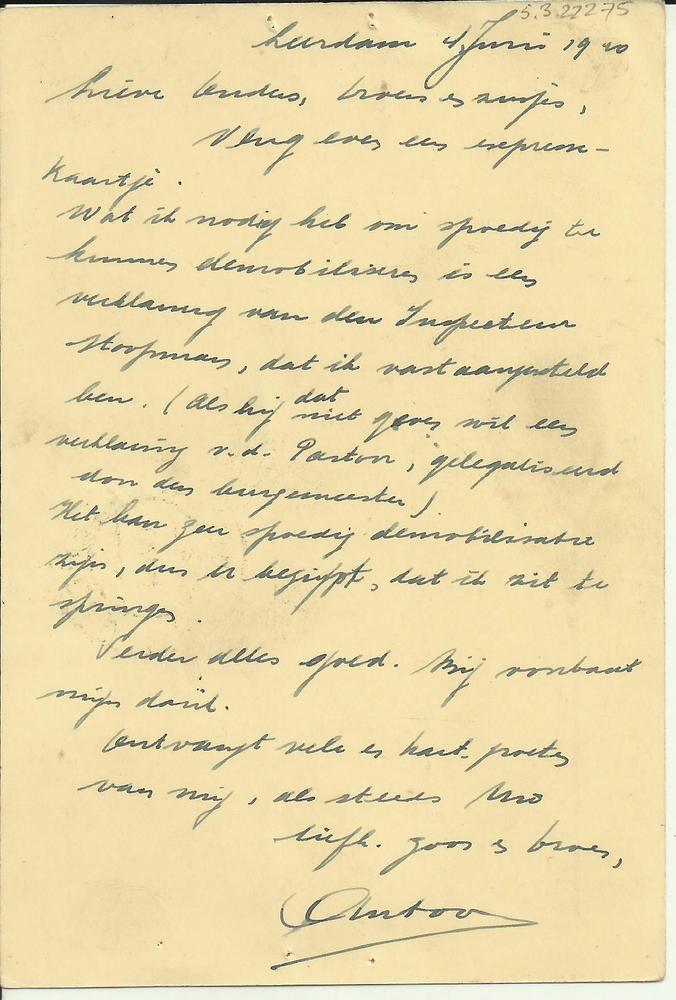 5.3.22275
Leerdam 4 Juni 1940
Lieve Ouders, broers en zusjes,
Vlug even een expresse-
kaartje.
Wat ik nodig heb om spoedig te
kunnen demobiliseren is een
verklaring van den Inspecteur
, dat ik vast aangesteld
ben. (Als hij dat niet geven wil een
verklaring v.d. Pastoor, gelegaliseerd
door den burgemeester)
Het kan zeer spoedig demobilisatie
zijn, dus U begrijpt, dat ik zit te
springen.
Verder alles goed. Bij voorbaat
mijn dank.
Ontvangt vele en hart. groeten
van mij, als steeds Uw
liefh. zoon en broer,
Antoon